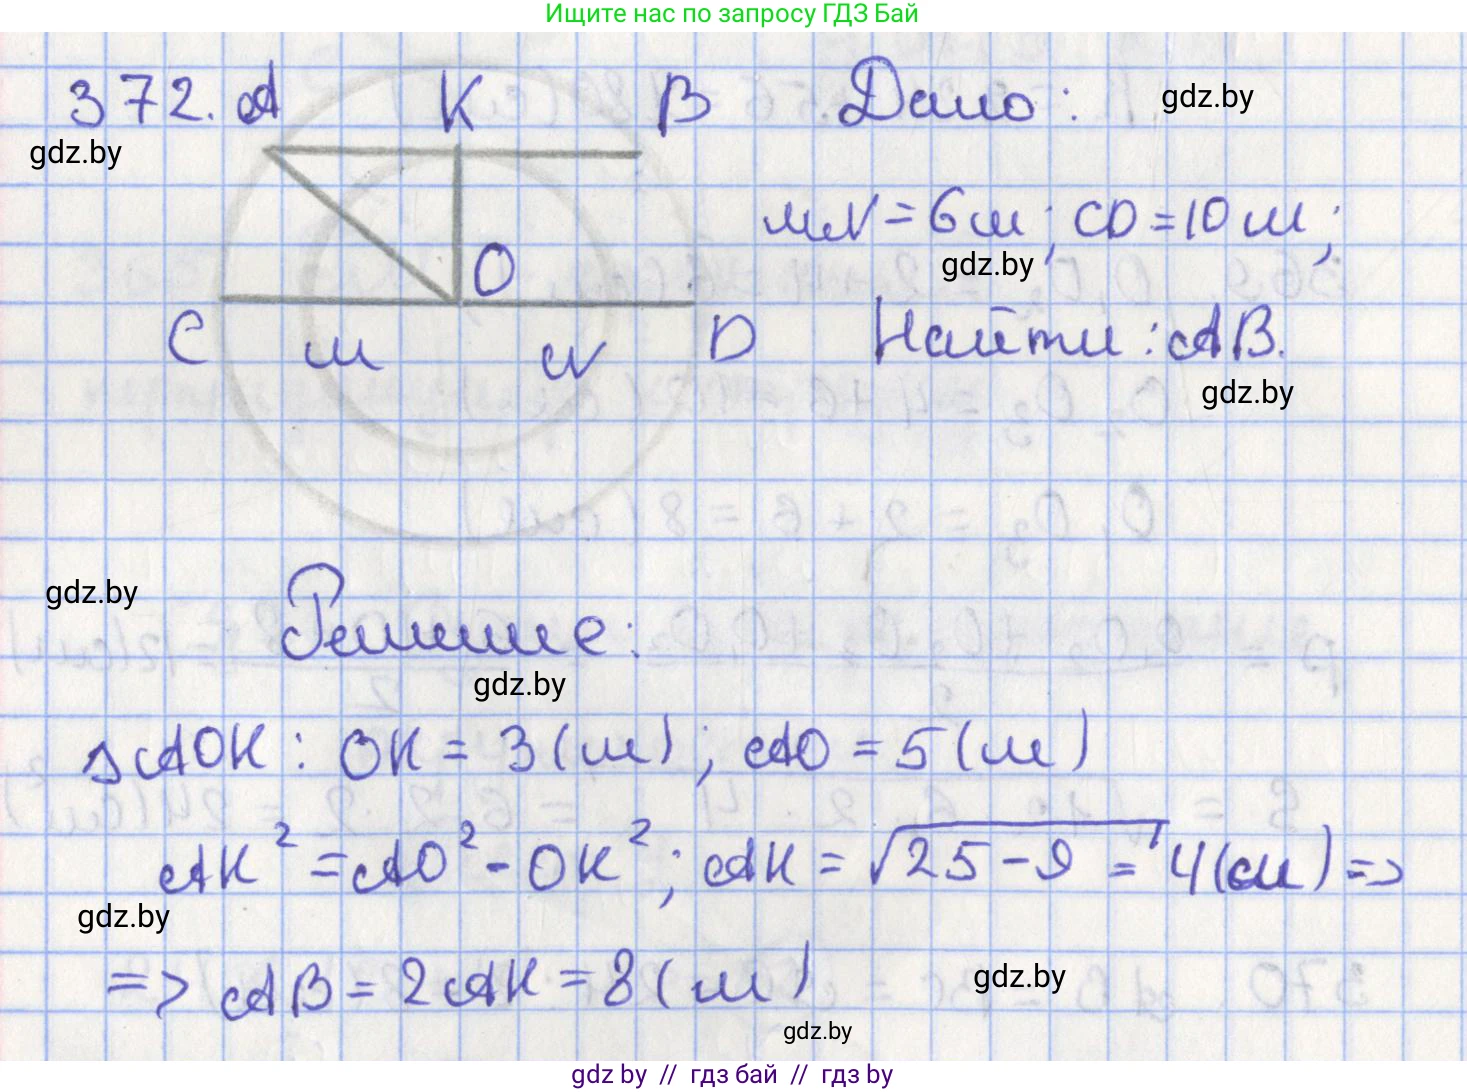 Ищите нас по запросу ГДЗ Бай
372. A K B Дано: gdz.by
gdz.by
MN = 6 м; CD = 10 м;
O gdz.by
C M N D Найти: AB.
gdz.by
gdz.by
Решение:
gdz.by
△AOK: OK = 3 (м); AO = 5 (м)
AK² = AO² - OK²; AK = √25 - 9 = 4 (м) =>
gdz.by
=> AB = 2AK = 8 (м)
gdz.by
gdz.by
gdz by // гдз бай // gdz by